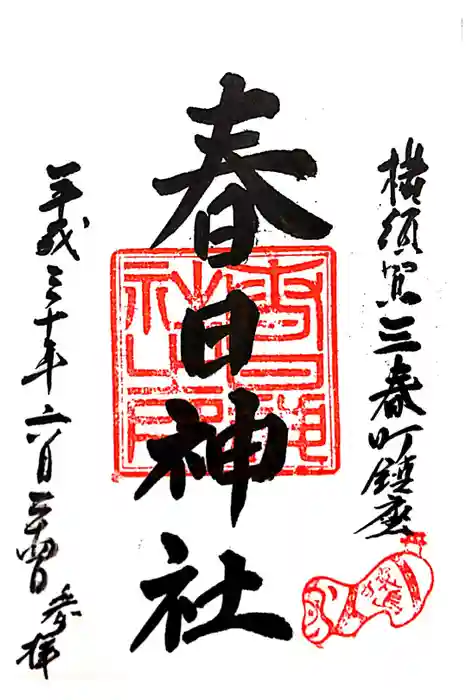 横須賀三春町鎮座
春日神社
平成三十年六月二十四日 参拝
春日神社之印